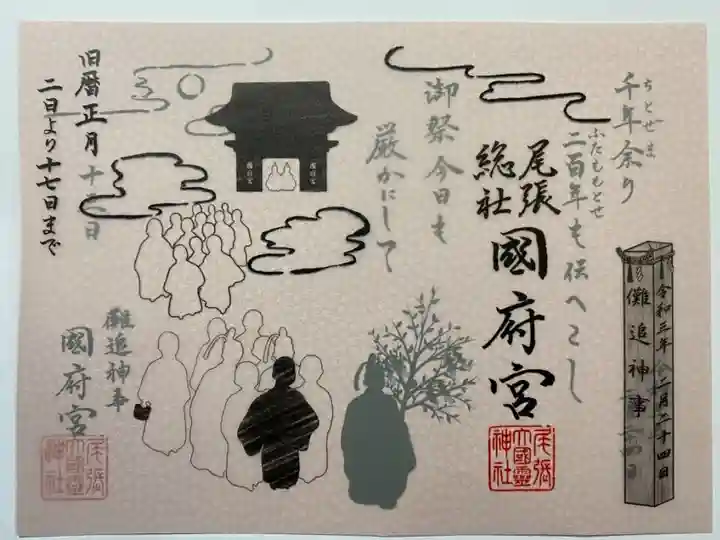 千年余り
ちとせま
二百年も伝へこし
ふたももとせ
御祭今日も
厳かにして
尾張
総社
國府宮
尾張
大國霊
神社
儺追神事
令和三年
二月二十四日
國府宮
國府宮
旧暦正月
二日より十七日まで
儺追神事
國府宮
尾張
大國霊
神社